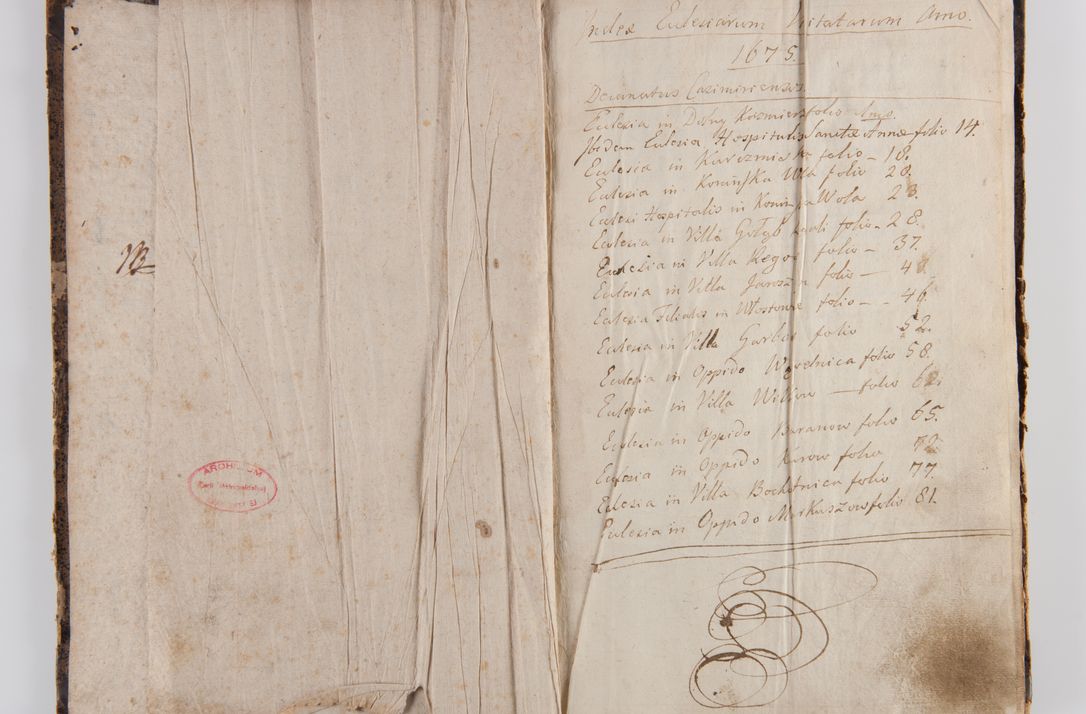 NB
ARCHIVUM
Index Ecclesiarum Visitatarum Anno.
1675.
Decanatus Casimiriensis
Eclesia in Dolny Kozmierz folio Anno.
Ibidem Eclesia Hospitalis Sanctae Annae folio 14.
Eclesia in Karczmiska folio – 18.
Eclesia in Konińska Wla folio 20.
Eclesi Hospitalis in Konińska Wola 23.
Eclesia in Villa Gołąb folio – 28.
Eclesia in Villa Regow folio – 37.
Eclesia in Villa folio — 40.
Eclesia Filialis in Włostowice folio – – 46.
Eclesia in Villa Garbow folio 52.
Eclesia in Oppido Wąvolnica folio 58.
Eclesia in Villa Wilkow — folio 62.
Eclesia in Oppido Baranow folio 65.
Eclesia in Oppido Kurow folio 72.
Eclesia in Villa Bochotnica folio 77.
Eclesia in Oppido Markuszow folio 81.